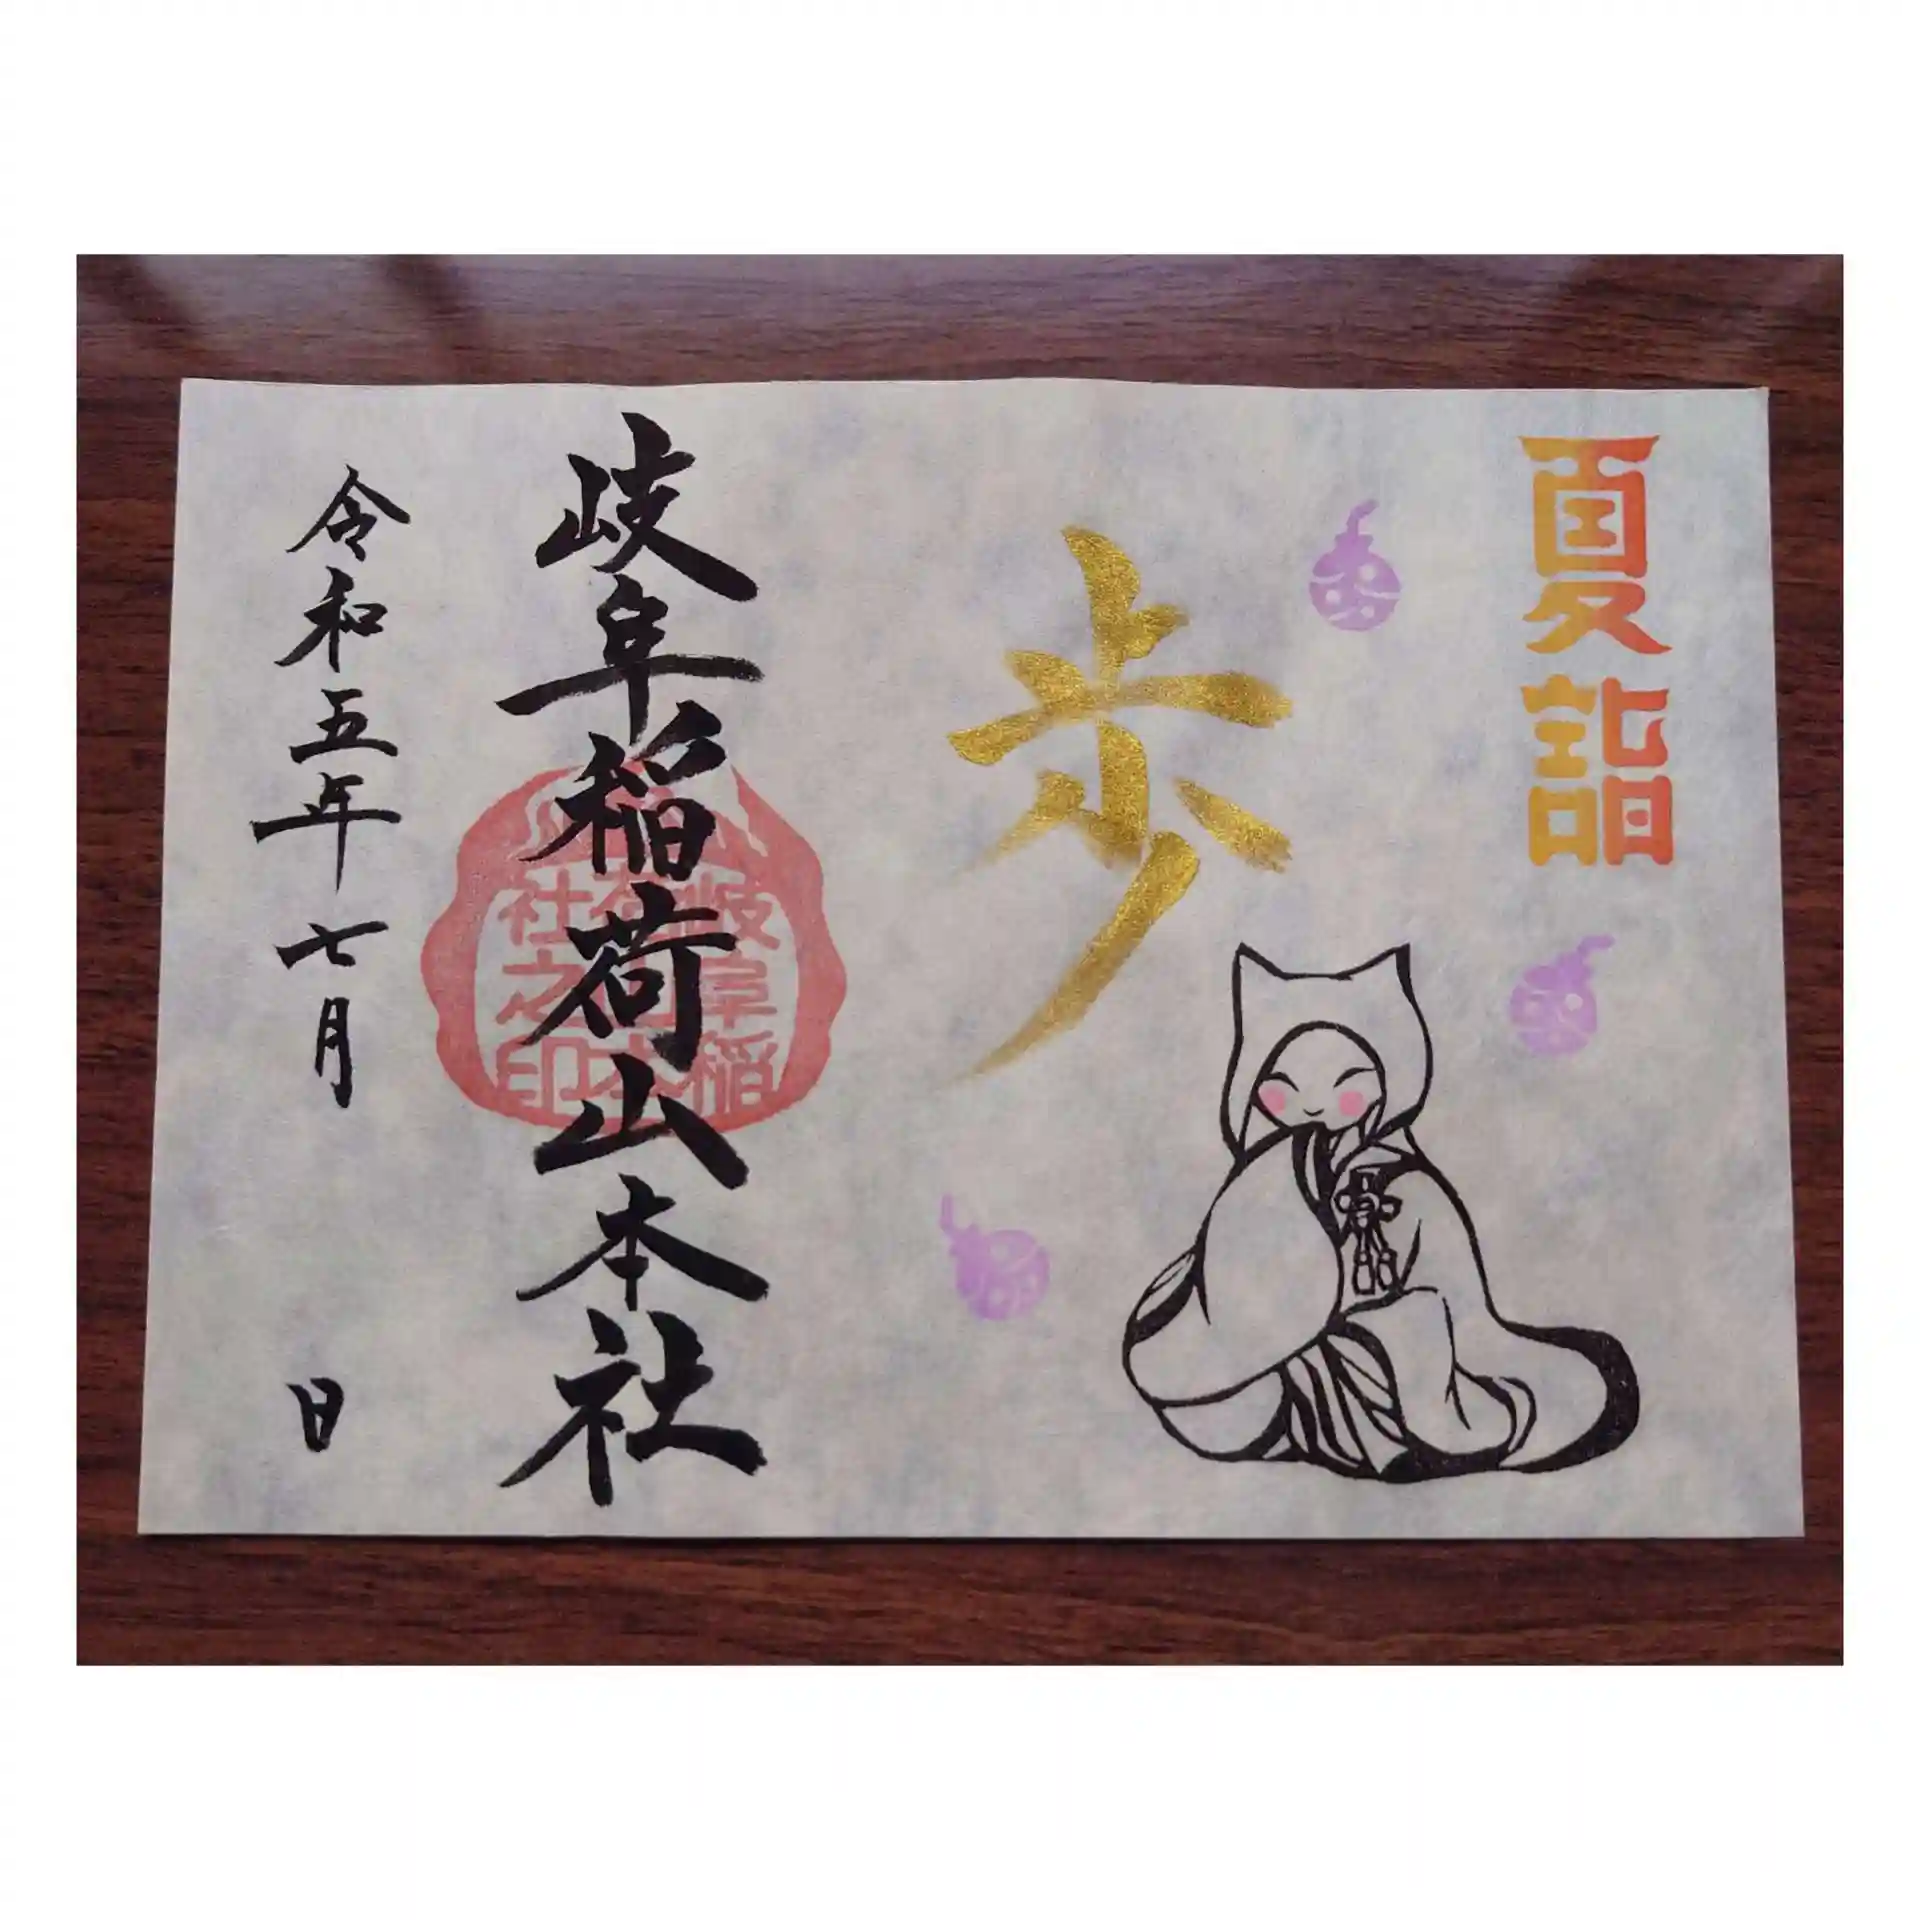 夏詣
歩
岐阜稲荷山本社
岐阜稲
社之印
令和五年七月 日